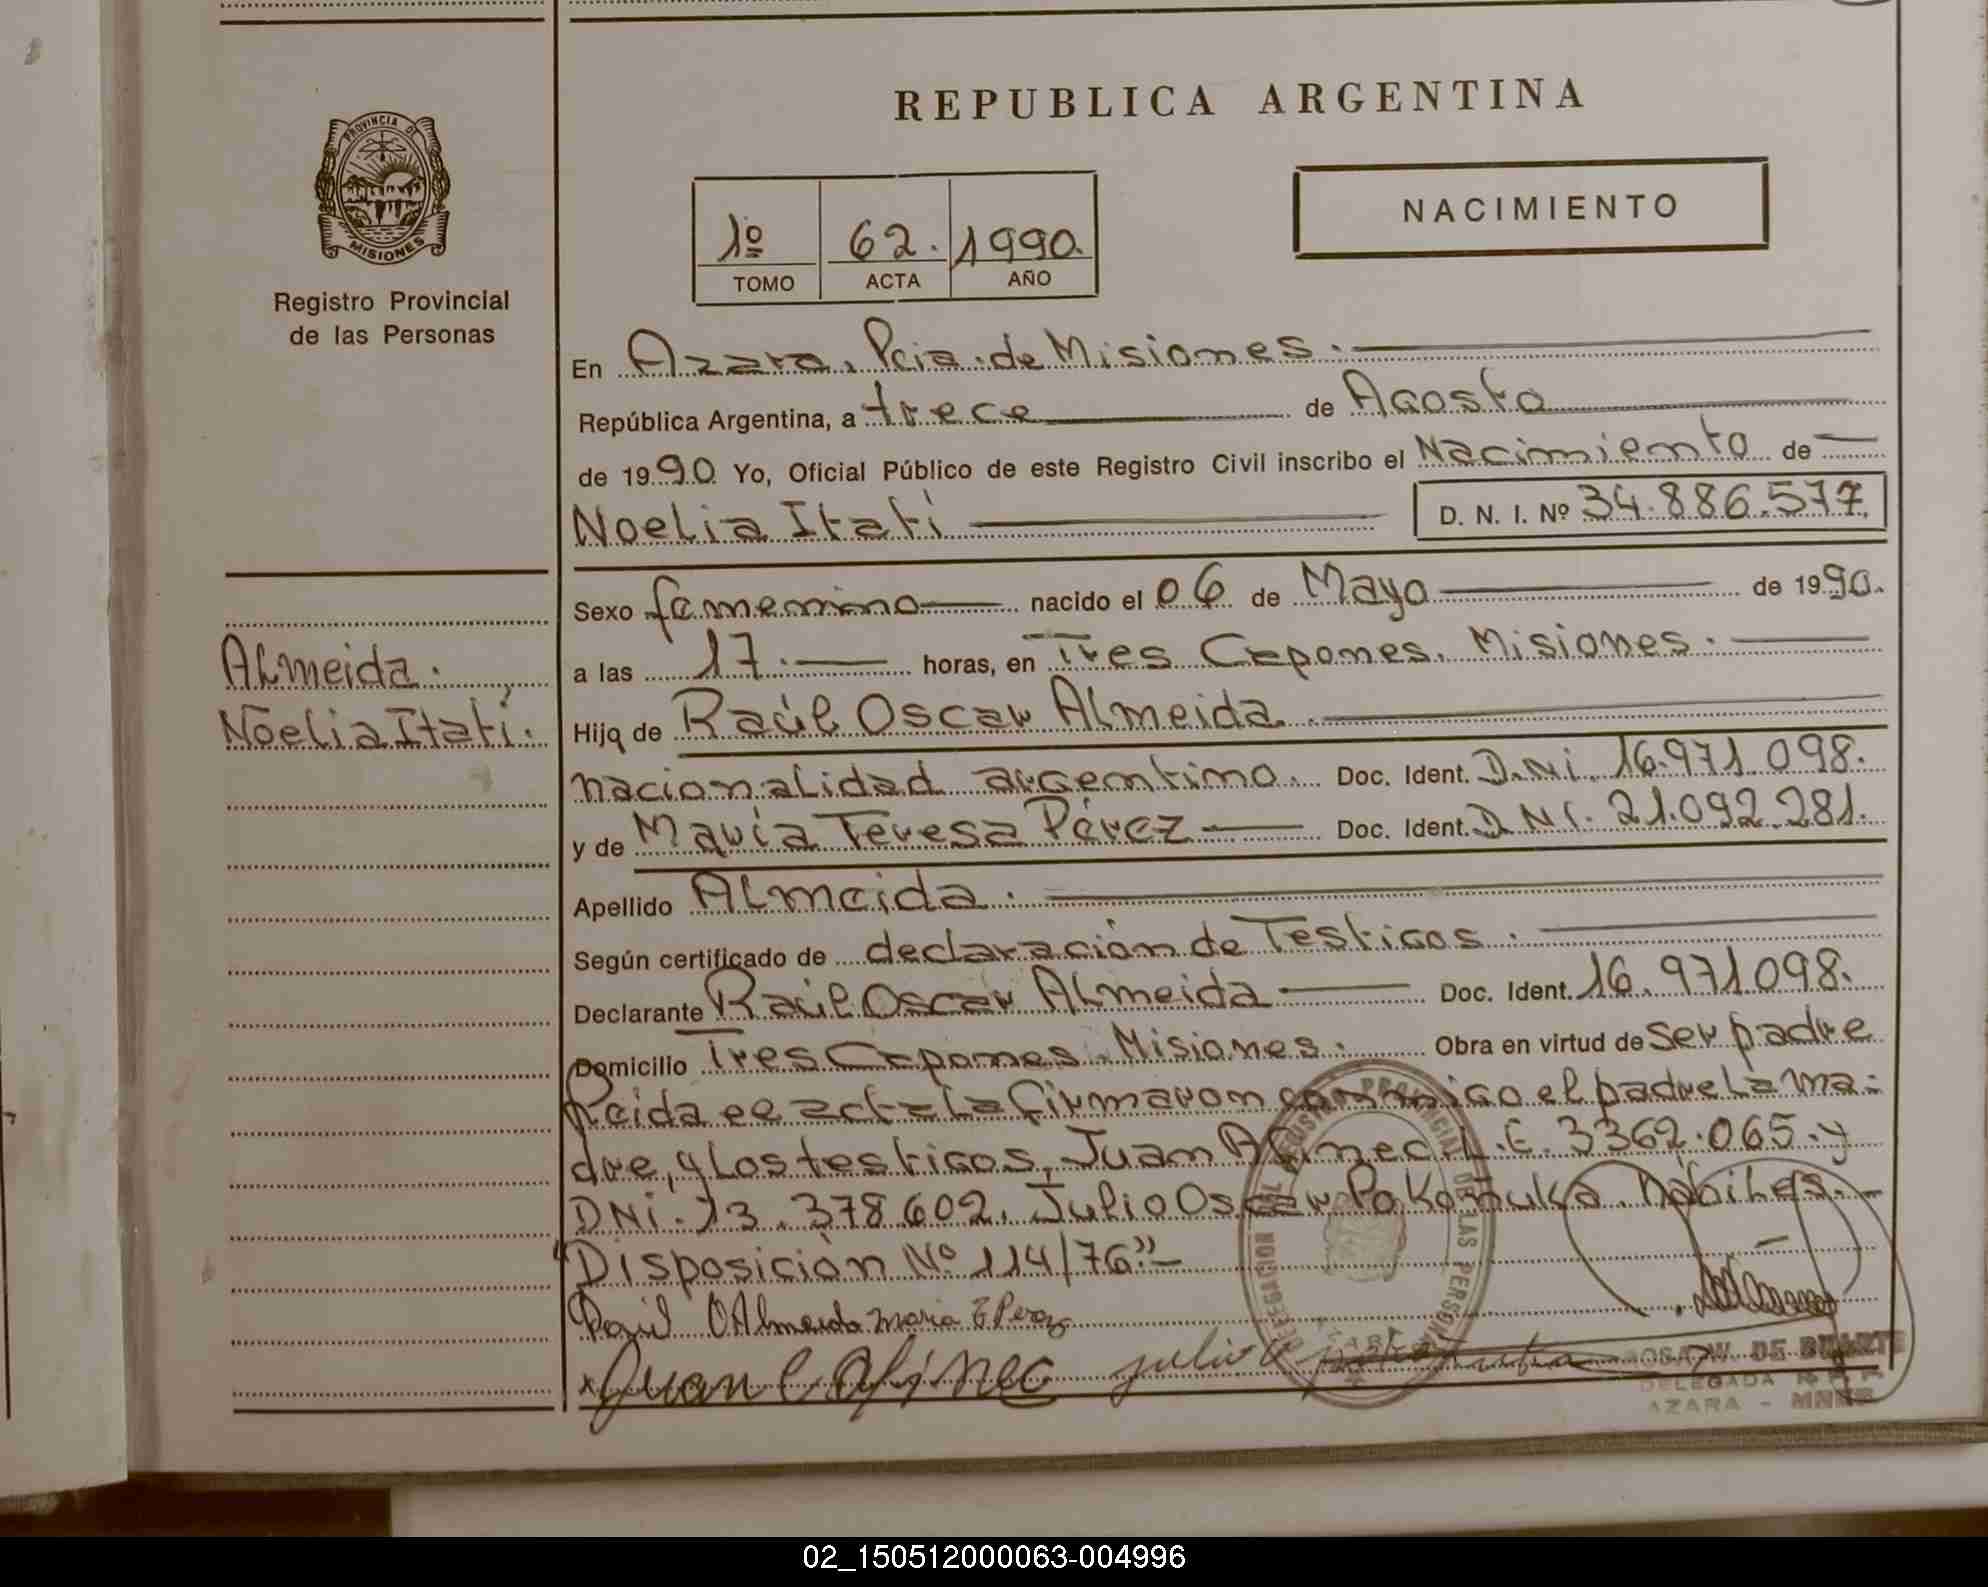 REPUBLICA ARGENTINA
PROVINCIA DE
MISIONES
Registro Provincial
de las Personas
NACIMIENTO
1º 62. 1990
TOMO ACTA AÑO
En Azara, Pcia. de Misiones.
República Argentina, a trece de Agosto
de 1990 Yo, Oficial Público de este Registro Civil inscribo el Nacimiento de
Noelia Itatí D. N. I. Nº 34.886.577
Sexo femenino nacido el 06 de Mayo de 1990.
a las 17. horas, en Tres Capones. Misiones.
Almeida.
Noelia Itatí.
Hija de Raúl Oscar Almeida
nacionalidad argentino. Doc. Ident. D.Ni. 16.971.098.
y de María Teresa Pérez Doc. Ident. DNI. 21.092.281.
Apellido Almeida.
Según certificado de declaración de Testigos.
Declarante Raúl Oscar Almeida Doc. Ident. 16.971098.
Domicilio Tres Capones. Misiones. Obra en virtud de ser padre
Leida el acta la firmaron conmigo el padre La ma-
dre, y Los testigos, Juan L.E. 3362.065.y
DNi. 13.378602. Julio Oscar hábiles.
"Disposición Nº 114/76"
Raúl O Almeida Maria T Perez
Juan
Julio
DE LAS PERSONAS
DELEGADA R.P.P.
AZARA - MNES
02_150512000063-004996